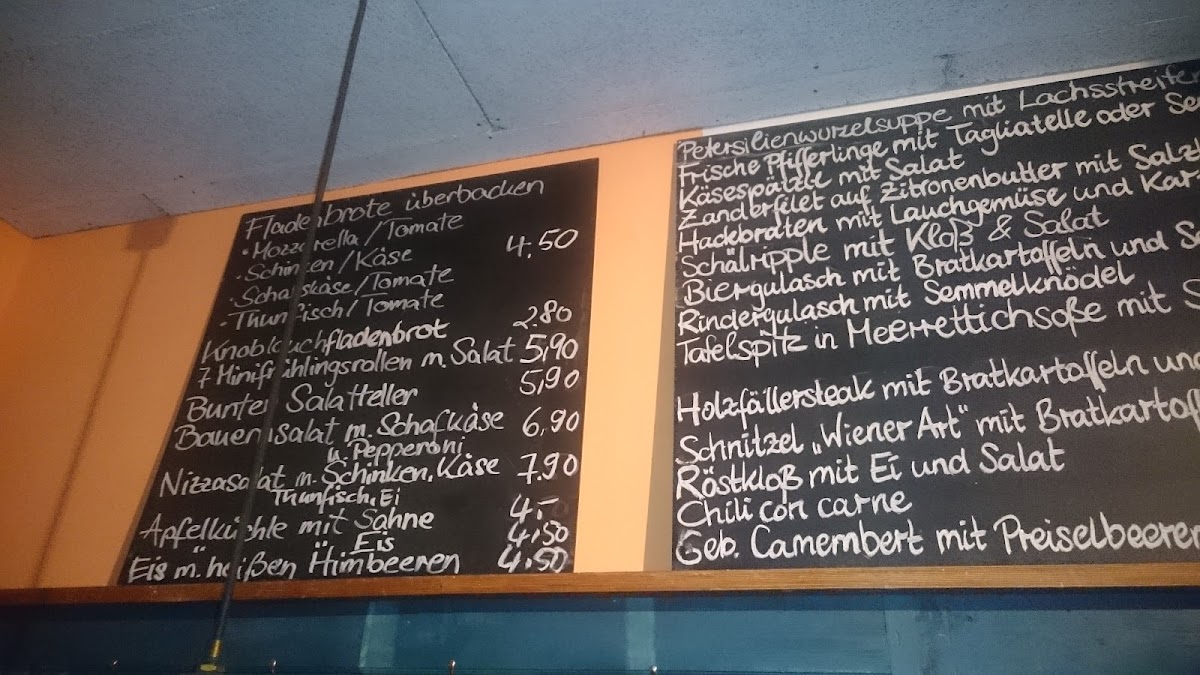 Fladenbrote überbacken
· Mozzarella/Tomate
· Schinken/Käse 4.50
· Schafskäse/Tomate
· Thunfisch/Tomate
Knoblauchfladenbrot 2.80
7 Minifrühlingsrollen m. Salat 5,90
Bunter Salatteller 5,90
Bauernsalat m. Schafkäse 6,90
u. Pepperoni
Nizzasalat m. Schinken, Käse 7.90
Thunfisch, Ei
Apfelküchle mit Sahne 4,-
" " Eis 4,50
Eis m. heißen Himbeeren 4.50
Petersilienwurzelsuppe mit Lachsstreifen
Frische Pfifferlinge mit Tagliatelle oder
Käsespätzle mit Salat
Zanderfilet auf Zitronenbutter mit
Hackbraten mit Lauchgemüse und
Schälripple mit Kloß & Salat
Biergulasch mit Bratkartoffeln und
Rindergulasch mit Semmelknödel
Tafelspitz in Meerrettichsoße mit
Holzfällersteak mit Bratkartoffeln und
Schnitzel „Wiener Art" mit
Röstkloß mit Ei und Salat
Chili con carne
Geb. Camembert mit Preiselbeeren